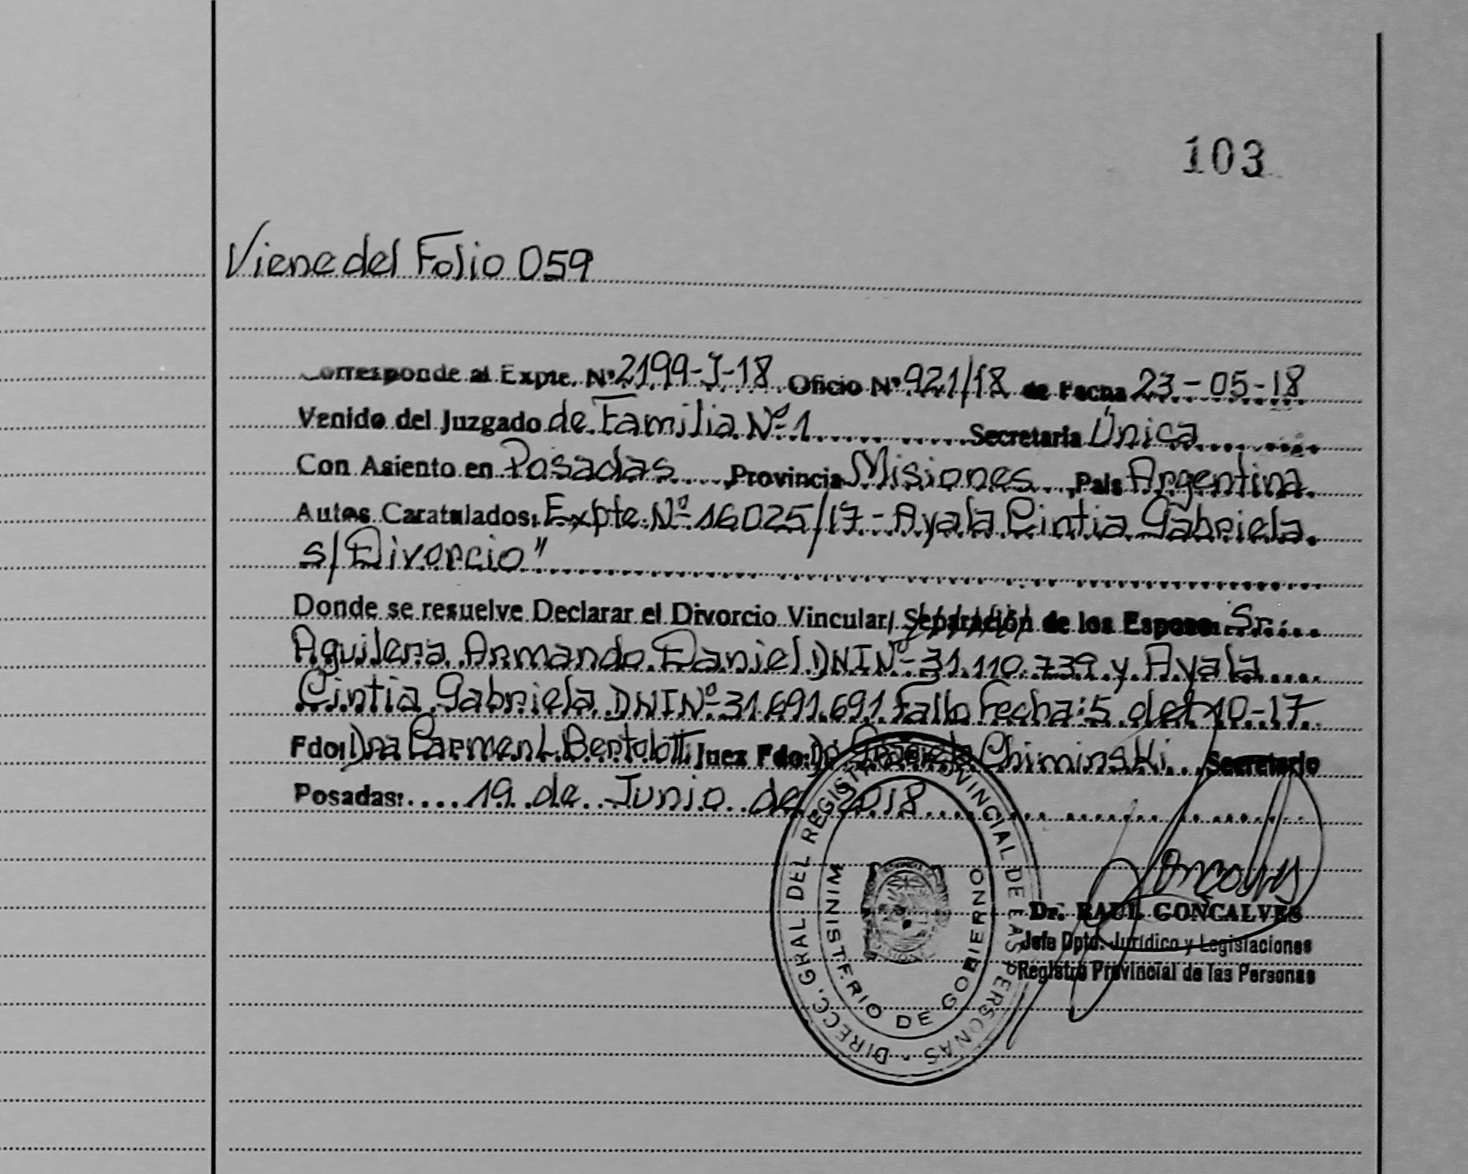 103
Viene del Folio 059
Corresponde al Expte. Nº 2199-J-18 Oficio Nº 921/18 de Fecha 23-05-18
Venido del Juzgado de Familia Nº 1 Secretaria Única
Con Asiento en Posadas, Provincia Misiones, Pais Argentina.
Autos Caratulados: Expte. Nº 16025/17 - Ayala Cintia Gabriela.
s/ Divorcio"
Donde se resuelve Declarar el Divorcio Vincular/ Separación de los Esposos Sr.
Aguilera Armando Daniel DNI Nº 31.110.739 y Ayala
Cintia Gabriela DNI Nº 31.691.691. Fallo Fecha: 5 del 10-17.
Fdo: Dra Carmen L. Bertolotti Juez Fdo: Graciela Chiminski Secretario
Posadas: 19 de Junio de 2018
DIRECC. GRAL DEL REGISTRO PROVINCIAL DE LAS PERSONAS
MINISTERIO DE GOBIERNO
Dr. RAUL GONCALVES
Jefe Dpto. Jurídico y Legislaciones
Registro Provincial de las Personas